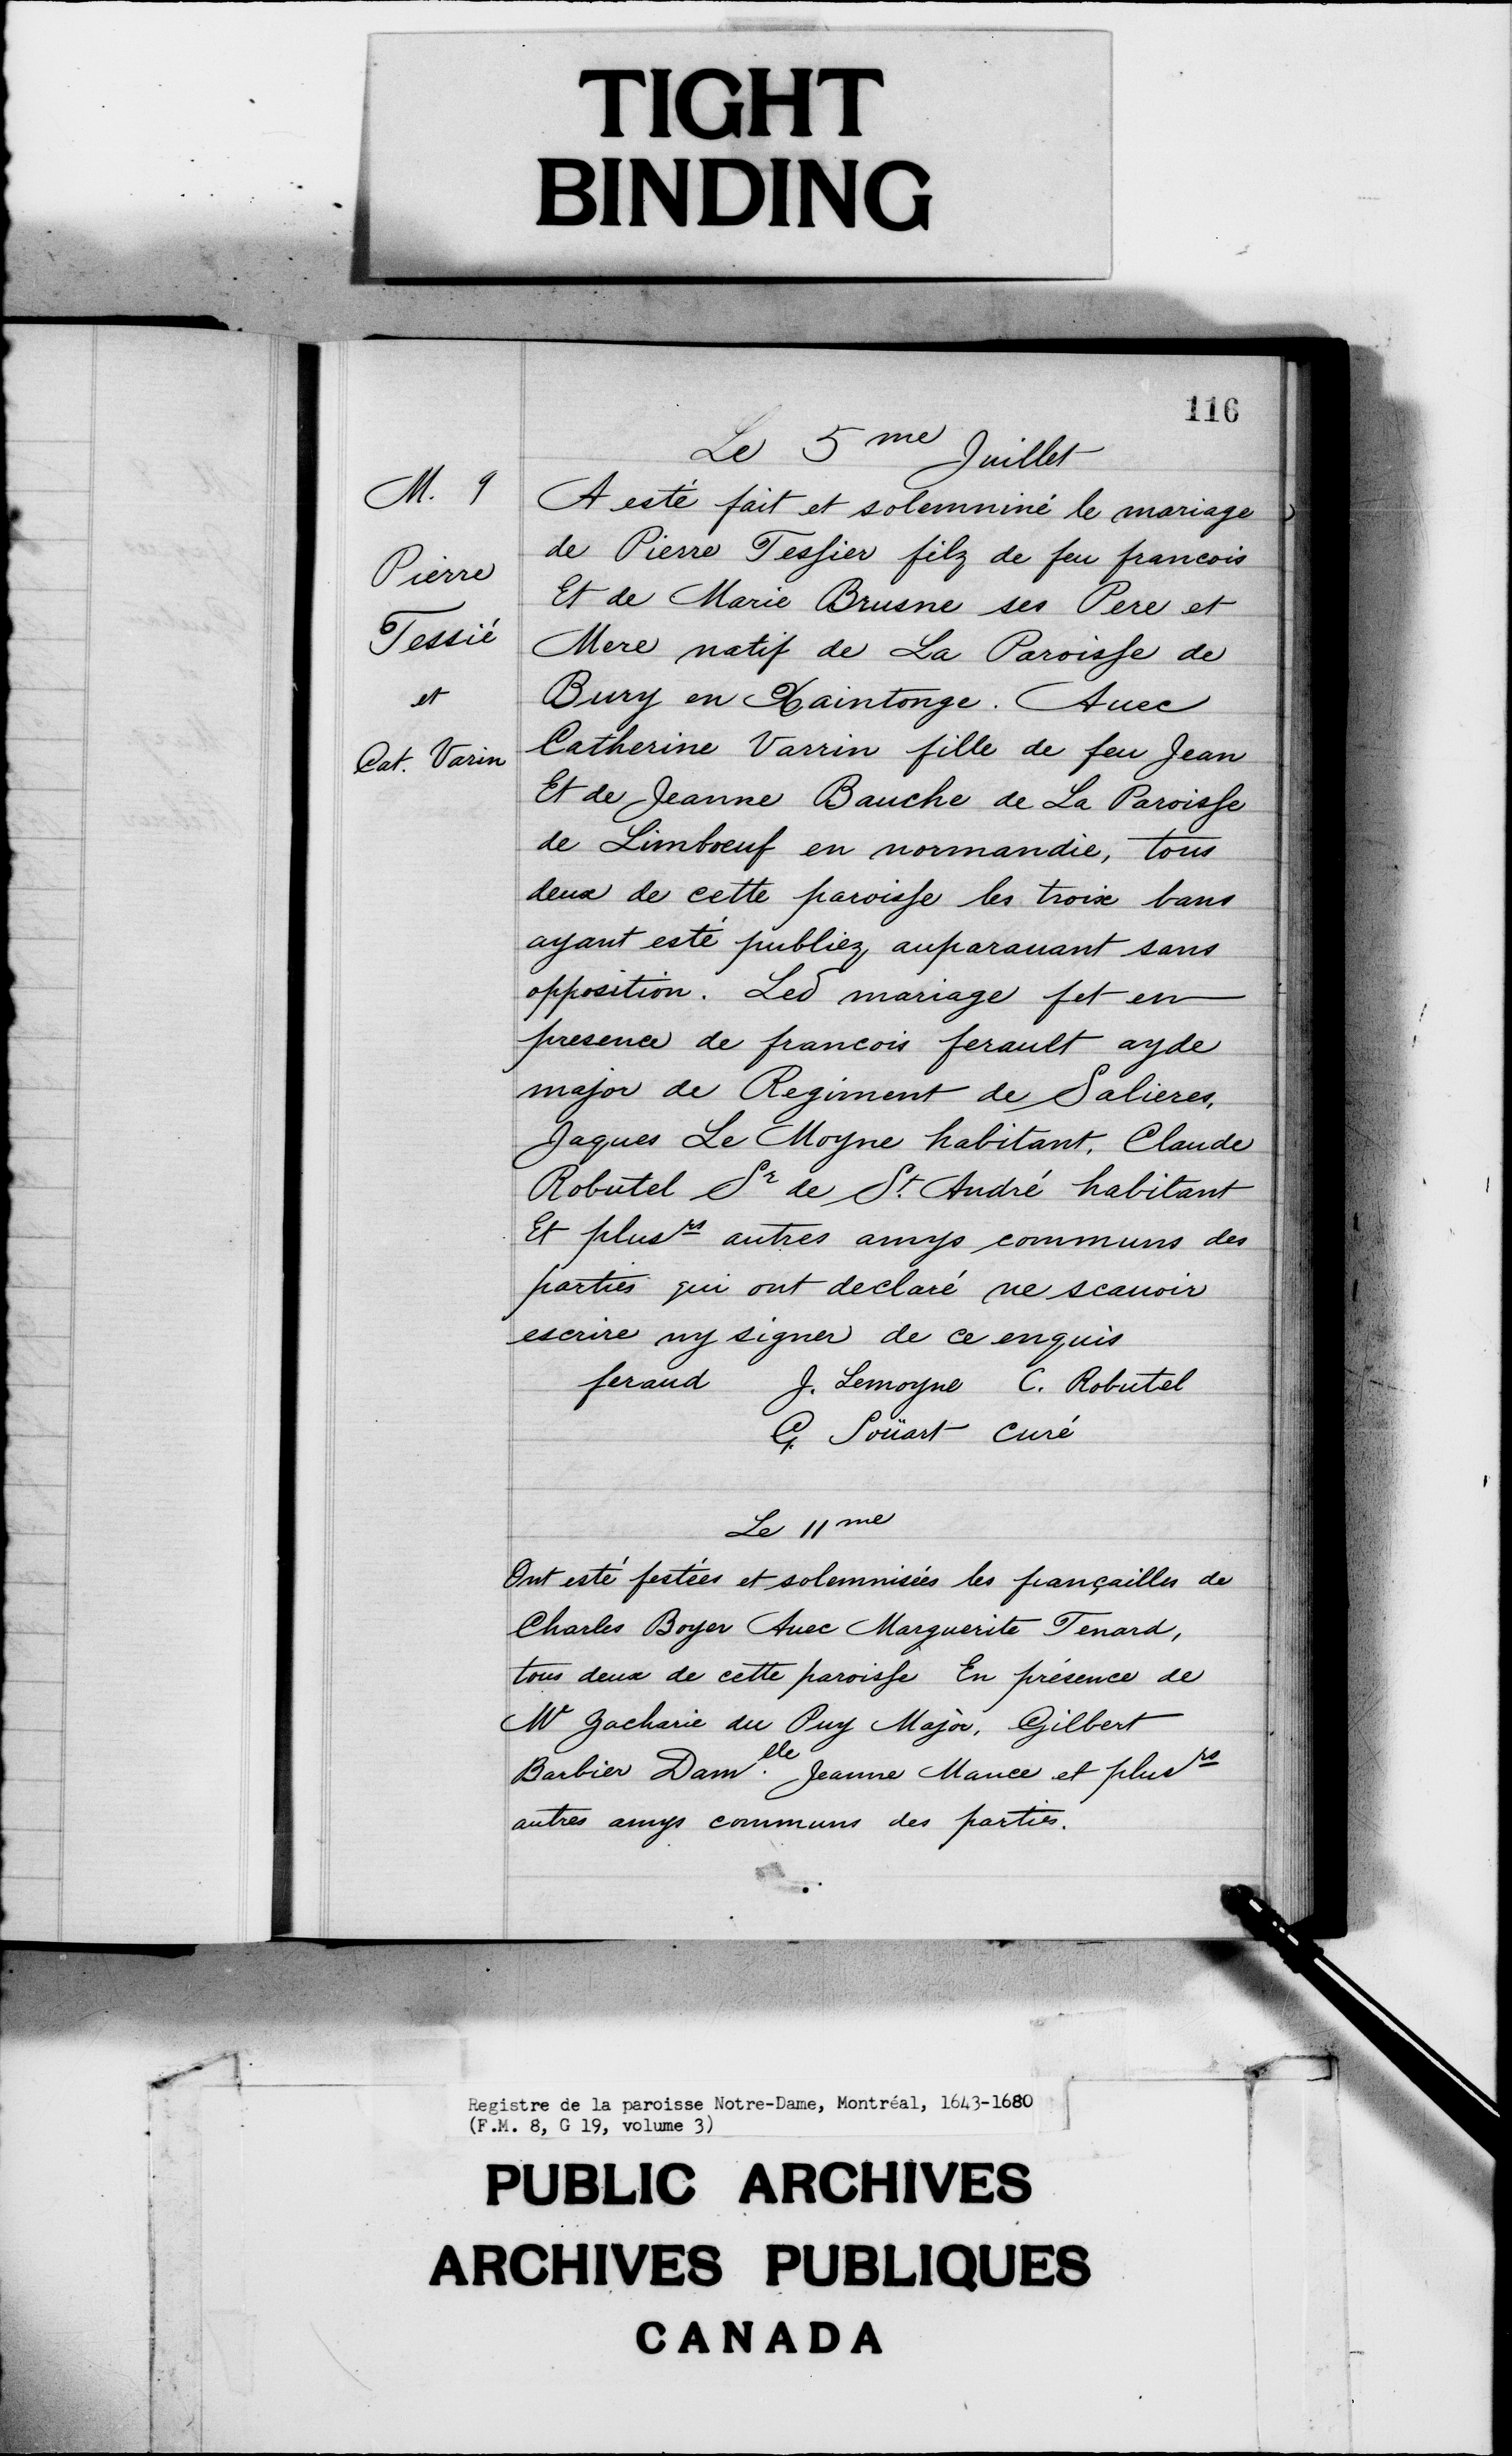 TIGHT
BINDING
116
Le 5me Juillet
M. 9
Pierre
Tessié
et
Cat. Varin
A esté fait et solemniné le mariage
de Pierre Tessier filz de feu francois
Et de Marie Brusne ses Pere et
Mere natif de La Paroisse de
Bury en Xaintonge. Auec
Catherine Varrin fille de feu Jean
Et de Jeanne Bauche de La Paroisse
de Limbœuf en normandie, tous
deux de cette paroisse les troix bans
ayant esté publiez auparauant sans
opposition. Led mariage fet en
presence de francois ferault ayde
major de Regiment de Salieres,
Jaques Le Moyne habitant, Claude
Robutel Sr de St André habitant
Et plusrs autres amys communs des
parties qui ont declaré ne scauoir
escrire ny signer de ce enquis
feraud J. Lemoyne C. Robutel
G. Soüart curé
Le 11me
Ont esté festées et solemnisées les fiançailles de
Charles Boyer Auec Marguerite Tenard,
tous deux de cette paroisse En présence de
Mr Zacharie du Puy Major, Gilbert
Barbier Dam.lle Jeanne Mance et plusrs
autres amys communs des parties.
Registre de la paroisse Notre-Dame, Montréal, 1643-1680
(F.M. 8, G 19, volume 3)
PUBLIC ARCHIVES
ARCHIVES PUBLIQUES
CANADA